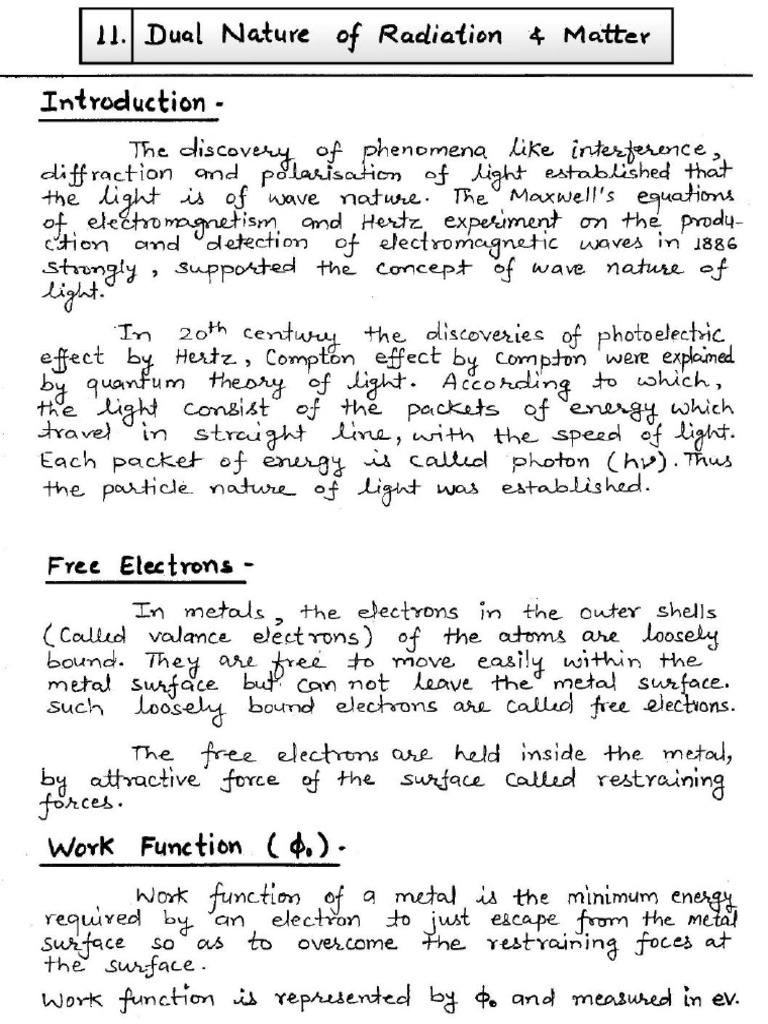 11. Dual Nature of Radiation & Matter
Introduction -
The discovery of phenomena like interference,
diffraction and polarisation of light established that
the light is of wave nature. The Maxwell's equations
of electromagnetism and Hertz experiment on the produ-
ction and detection of electromagnetic waves in 1886
strongly, supported the concept of wave nature of
light.
In 20th century the discoveries of photoelectric
effect by Hertz, Compton effect by Compton were explained
by quantum theory of light. According to which,
the light consist of the packets of energy which
travel in straight line, with the speed of light.
Each packet of energy is called photon (hν). Thus
the particle nature of light was established.
Free Electrons -
In metals, the electrons in the outer shells
(Called valance electrons) of the atoms are loosely
bound. They are free to move easily within the
metal surface but can not leave the metal surface.
such loosely bound electrons are called free electrons.
The free electrons are held inside the metal,
by attractive force of the surface called restraining
forces.
Work Function (ϕ₀) -
Work function of a metal is the minimum energy
required by an electron to just escape from the metal
surface so as to overcome the restraining foces at
the surface.
Work function is represented by ϕ₀ and measured in ev.